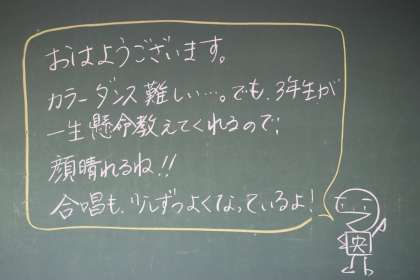 おはようございます。
カラーダンス難しい…。でも、3年生が
一生懸命教えてくれるので、
顔晴れるね!!
合唱も、少しずつよくなっているよ!
央